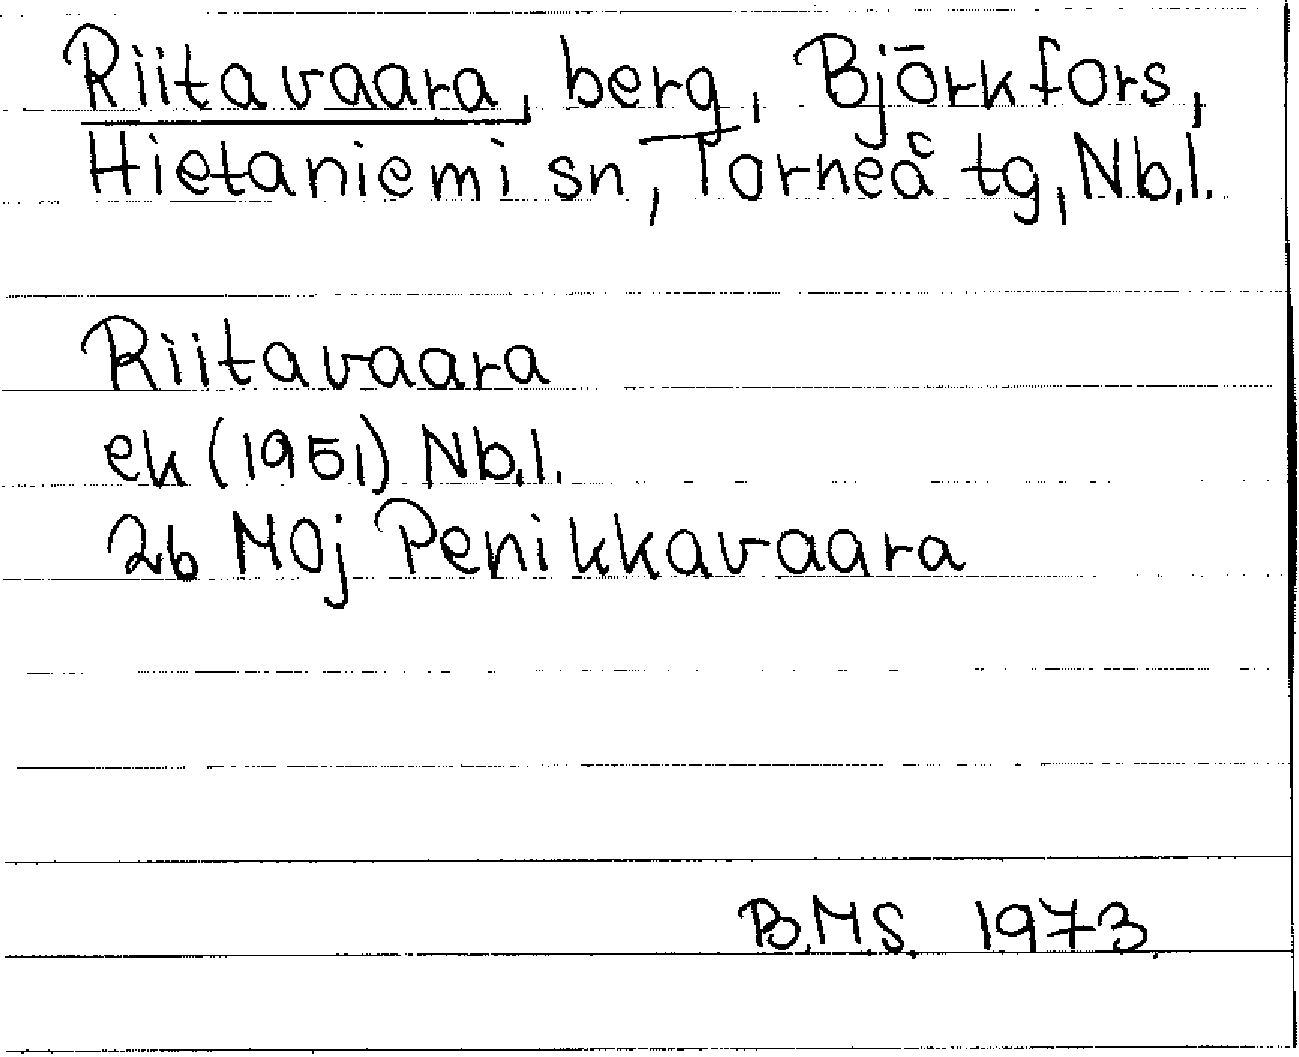 Riitavaara, berg, Björkfors,
Hietaniemi sn, Torneå tg, Nb.l.
Riitavaara
ek (1951) Nb.l.
26 MOj Penikkavaara
B.M.S. 1973.